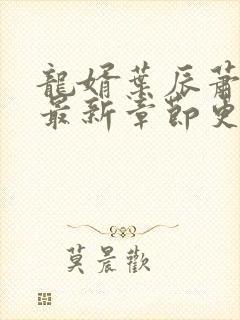 龍婿葉辰蕭
最新章節更
莫晨歡